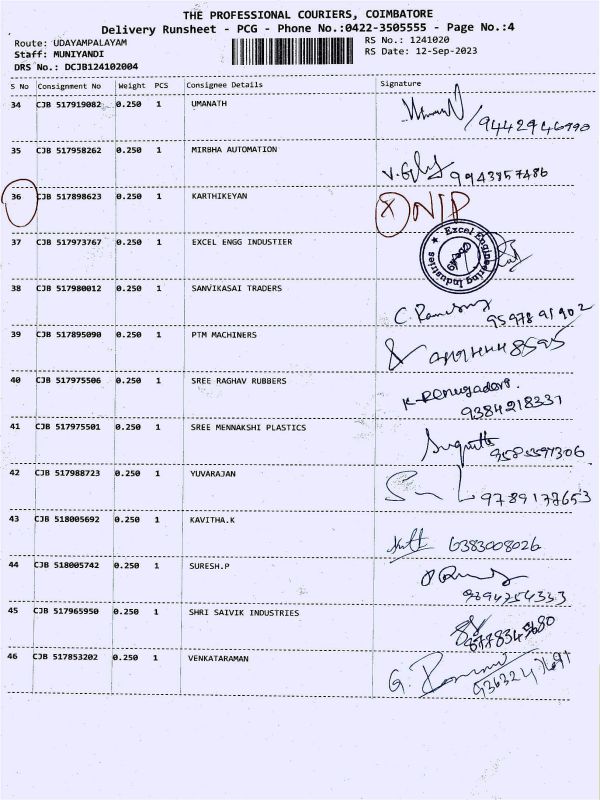 THE PROFESSIONAL COURIERS, COIMBATORE
Delivery Runsheet - PCG - Phone No.:0422-3505555 - Page No.:4
Route: UDAYAMPALAYAM RS No.: 1241020
Staff: MUNIYANDI RS Date: 12-Sep-2023
DRS No.: DCJB124102004
S No Consignment No Weight PCS Consignee Details Signature
34 CJB 517919082 0.250 1 UMANATH
9442946990
35 CJB 517958262 0.250 1 MIRBHA AUTOMATION
9943857486
36 CJB 517898623 0.250 1 KARTHIKEYAN X N/P
37 CJB 517973767 0.250 1 EXCEL ENGG INDUSTIER
Excel Engineering Industries
38 CJB 517980012 0.250 1 SANVIKASAI TRADERS
9597891902
39 CJB 517895090 0.250 1 PTM MACHINERS
40 CJB 517975506 0.250 1 SREE RAGHAV RUBBERS
9384218331
41 CJB 517975501 0.250 1 SREE MENNAKSHI PLASTICS
42 CJB 517988723 0.250 1 YUVARAJAN
9789178653
43 CJB 518005692 0.250 1 KAVITHA.K
6383008026
44 CJB 518005742 0.250 1 SURESH.P
45 CJB 517965950 0.250 1 SHRI SAIVIK INDUSTRIES
46 CJB 517853202 0.250 1 VENKATARAMAN